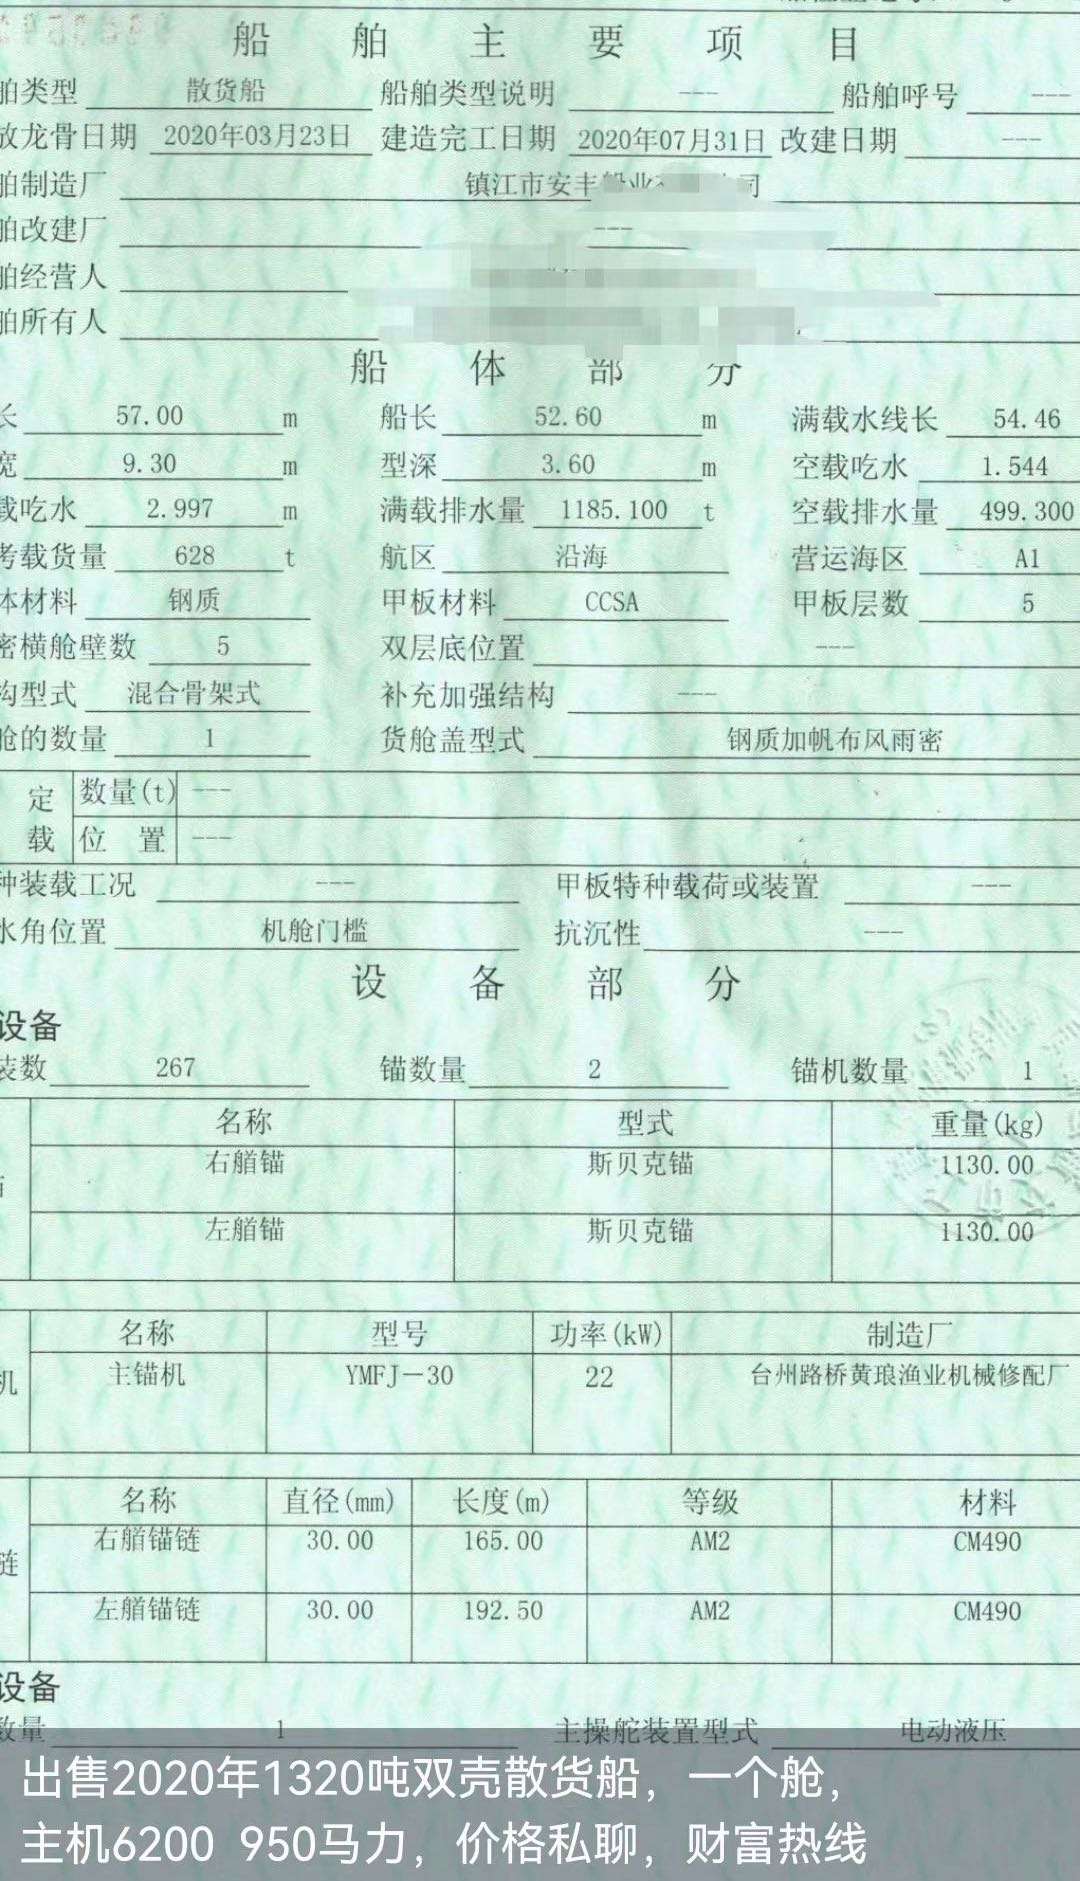 船舶主要项目
舶类型 散货船 船舶类型说明 --- 船舶呼号 ---
放龙骨日期 2020年03月23日 建造完工日期 2020年07月31日 改建日期 ---
舶制造厂 镇江市安丰船业 司
舶改建厂 ---
舶经营人
舶所有人
船体部分
长 57.00 m 船长 52.60 m 满载水线长 54.46
宽 9.30 m 型深 3.60 m 空载吃水 1.544
载吃水 2.997 m 满载排水量 1185.100 t 空载排水量 499.300
考载货量 628 t 航区 沿海 营运海区 A1
体材料 钢质 甲板材料 CCSA 甲板层数 5
密横舱壁数 5 双层底位置 ---
构型式 混合骨架式 补充加强结构 ---
舱的数量 1 货舱盖型式 钢质加帆布风雨密
定 数量(t) ---
载 位置 ---
种装载工况 --- 甲板特种载荷或装置 ---
水角位置 机舱门槛 抗沉性 ---
设备部分
设备
装数 267 锚数量 2 锚机数量 1
名称 型式 重量(kg)
右艏锚 斯贝克锚 1130.00
左艏锚 斯贝克锚 1130.00
名称 型号 功率(kW) 制造厂
机 主锚机 YMFJ-30 22 台州路桥黄琅渔业机械修配厂
名称 直径(mm) 长度(m) 等级 材料
链 右艏锚链 30.00 165.00 AM2 CM490
左艏锚链 30.00 192.50 AM2 CM490
设备
数量 1 主操舵装置型式 电动液压
出售2020年1320吨双壳散货船，一个舱，
主机6200 950马力，价格私聊，财富热线